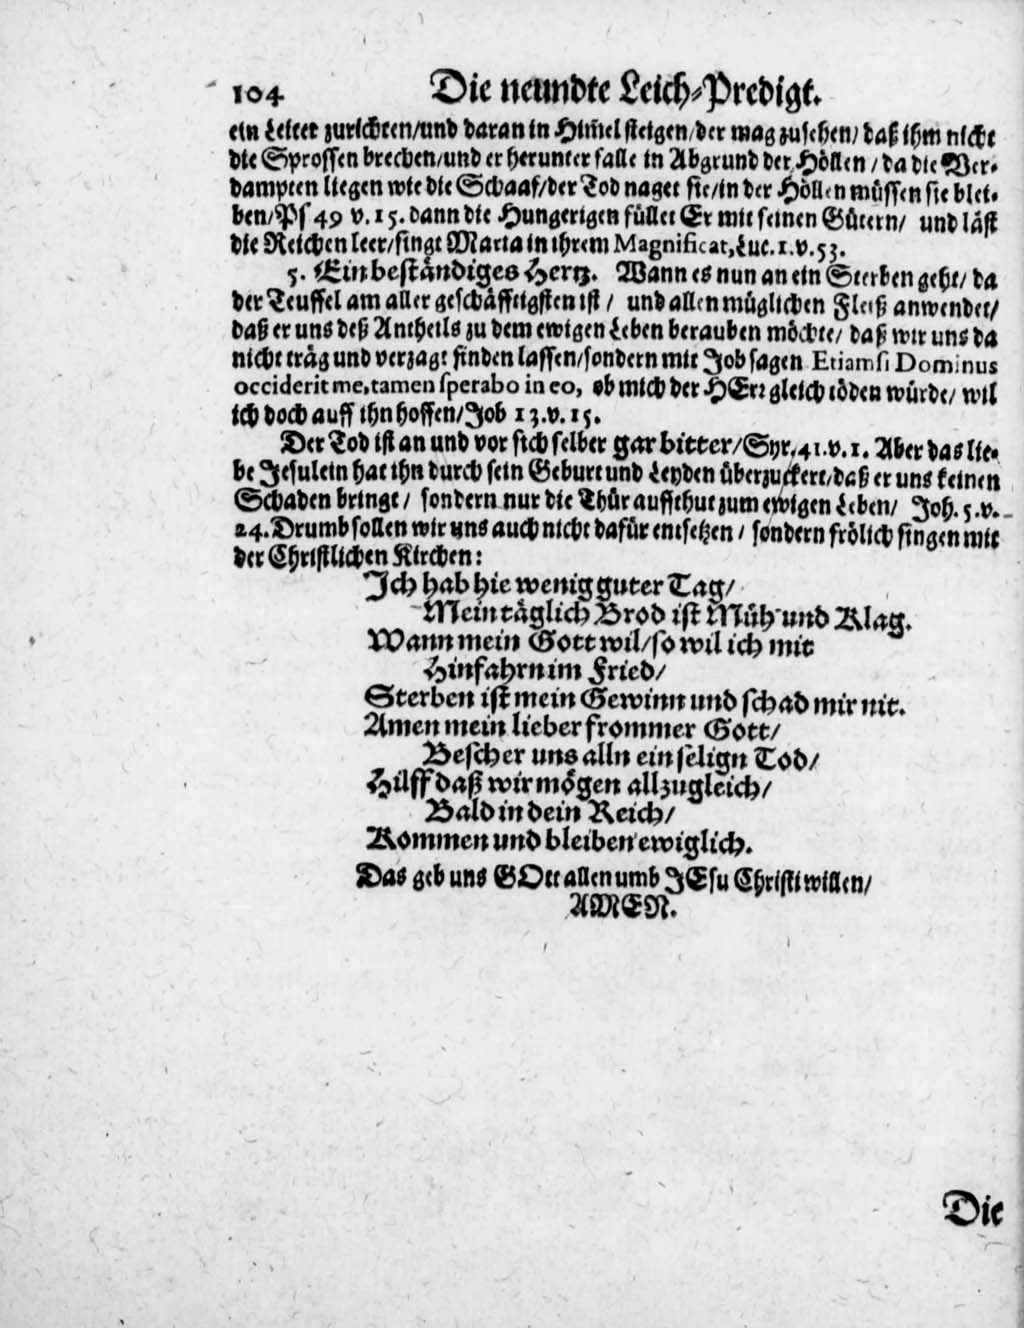 104 Die neundte Leich-Predigt.
ein Leiter zurichten/und daran in Him̃el steigen/der mag zusehen/ daß ihm nicht
die Sprossen brechen/und er herunter falle in Abgrund der Höllen / da die Ver-
dampten liegen wie die Schaaf/der Tod naget sie/in der Höllen müssen sie blei-
ben/Ps 49 v. 15. dann die Hungerigen füllet Er mit seinen Gütern/ und läst
die Reichen leer/singt Maria in ihrem Magnificat, Luc. 1. v. 53.
5. Ein beständiges Hertz. Wann es nun an ein Sterben geht/ da
der Teuffel am aller geschäfftigsten ist / und allen müglichen Fleiß anwendet/
daß er uns deß Antheils zu dem ewigen Leben berauben möchte/ daß wir uns da
nicht träg und verzagt finden lassen/sondern mit Job sagen Etiamsi Dominus
occiderit me, tamen sperabo in eo, ob mich der HErr gleich töden würde/ wil
ich doch auff ihn hoffen/Job 13. v. 15.
Der Tod ist an und vor sich selber gar bitter/Syr. 41. v. 1. Aber das lie-
be Jesulein hat ihn durch sein Geburt und Leyden überzuckert/daß er uns keinen
Schaden bringt / sondern nur die Thür auffthut zum ewigen Leben/ Joh. 5. v.
24. Drumb sollen wir uns auch nicht dafür entsetzen / sondern frölich singen mit
der Christlichen Kirchen:
Ich hab hie wenig guter Tag/
Mein täglich Brod ist Müh und Klag.
Wann mein Gott wil/so wil ich mit
Hinfahrn im Fried/
Sterben ist mein Gewinn und schad mir nit.
Amen mein lieber frommer Gott/
Bescher uns alln ein selign Tod/
Hilff daß wir mögen allzugleich/
Bald in dein Reich/
Kommen und bleiben ewiglich.
Das geb uns GOtt allen umb JEsu Christi willen/
AMEN.
Die